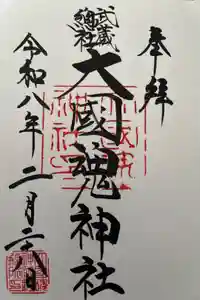 奉拝
武蔵
總社
大國魂神社
令和八年二月二十八日